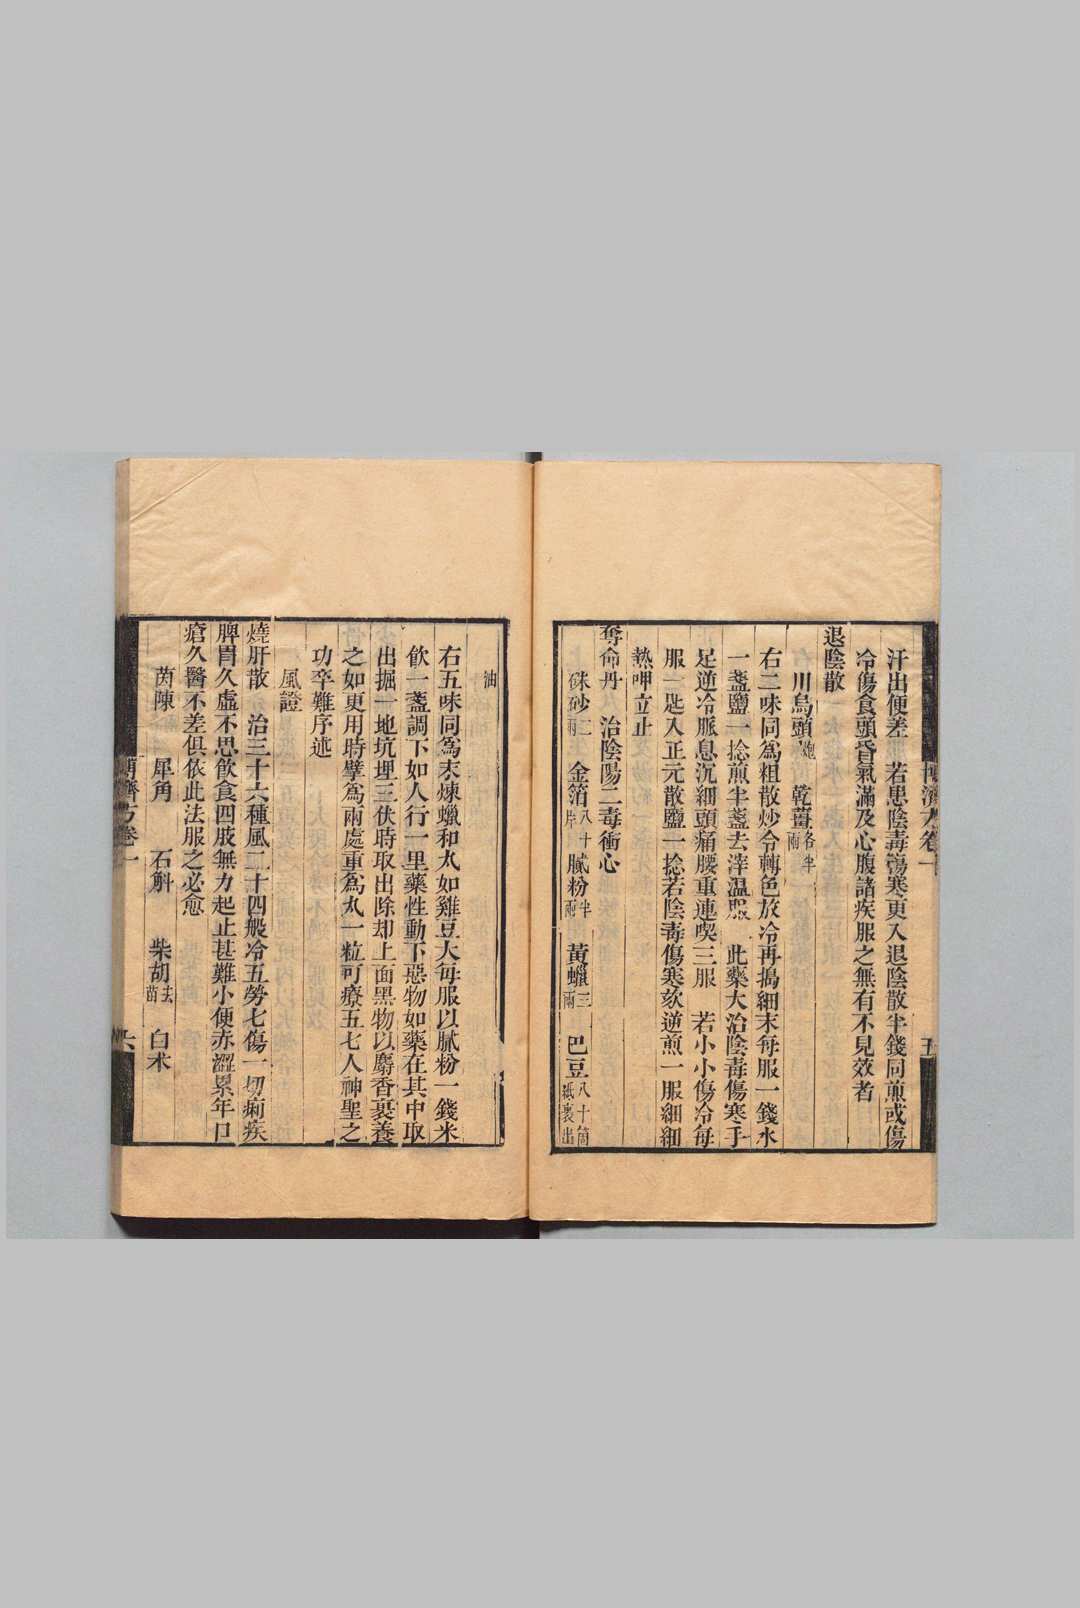 汗出便差 若患陰毒傷寒更入退陰散半錢同煎或傷
冷傷食頭昏氣滿及心腹諸疾服之無有不見效者
退陰散
川烏頭炮 乾薑各半兩
右二味同爲粗散炒令轉色放冷再搗細末每服一錢水
一盞鹽一捻煎半盞去滓溫服 此藥大治陰毒傷寒手
足逆冷脈息沉細頭痛腰重連喫三服 若小小傷冷每
服一匙入正元散鹽一捻若陰毒傷寒欬逆煎一服細細
熱呷立止
奪命丹 治陰陽二毒衝心
硃砂二兩 金箔八十片 膩粉半兩 黃蠟三兩 巴豆八十箇紙裹出
五
油
右五味同爲末煉蠟和丸如雞豆大每服以膩粉一錢米
飲一盞調下如人行一里藥性動下惡物如藥在其中取
出掘一地坑埋三伏時取出除却上面黑物以麝香裹養
之如更用時擘爲兩處重爲丸一粒可療五七人神聖之
功卒難序述
風證
燒肝散 治三十六種風二十四般冷五勞七傷一切痢疾
脾胃久虛不思飲食四肢無力起止甚難小便赤澀累年口
瘡久醫不差俱依此法服之必愈
茵陳 犀角 石斛 柴胡去苗 白朮
博濟方卷一
六